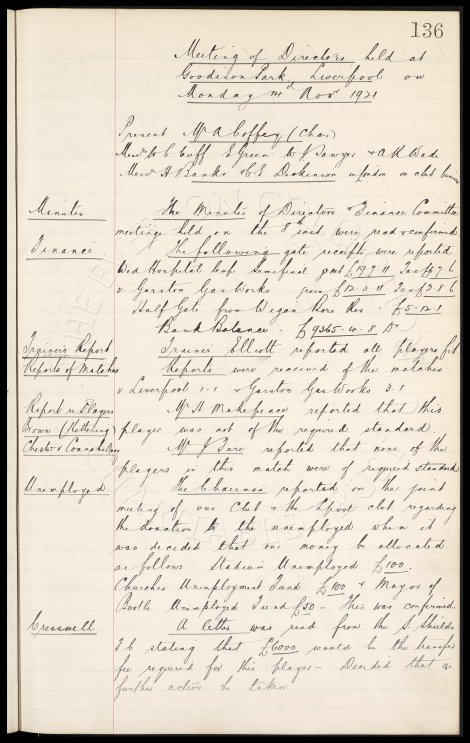 136
Meeting of Directors held at
Goodison Park, Liverpool on
Monday 14th Novr 1921
Present Mr A Coffey (Chair)
Messrs W. C. Cuff. E Green W J Sawyer & A. R. Wade
Messrs H Banks & C E Dickinson in London on club business
Minutes The Minutes of Directors & Finance Committee
meetings held on the 8th inst. were read & confirmed
Finance The following gate receipts were reported
Wed Hospital Cup Semifinal gross £197 11 Tax £47 6
v. Garston Gas Works gross £12.3.11 Tax £2.8.6
Half Gate from Wigan Boro Res - £5.12.1
Bank Balance - £9365.4.8 Dr
Trainers Report Trainer Elliott reported all players fit
Reports of Matches Reports were received of the matches
v Liverpool 1-1 & Garston Gas Works 3.1
Report re Players Mr H Makepeace reported that this
Brown (Kettering) player was not of the required standard
Chester v Connahs Quay Mr J Dare reported that none of the
players in this match were of required standard
Unemployed The Chairman reported on the joint
meeting of our Club & the Lpool club regarding
the donation to the unemployed when it
was decided that our money be allocated
as follows Unemployed £100.
Churches Unemployment Fund £100 & Mayor of
Bootle Unemployed Fund £50 - This was confirmed.
Cresswell A letter was read from the S. Shields
F C stating that £6000 would be the transfer
fee required for this player - Decided that no
further action be taken